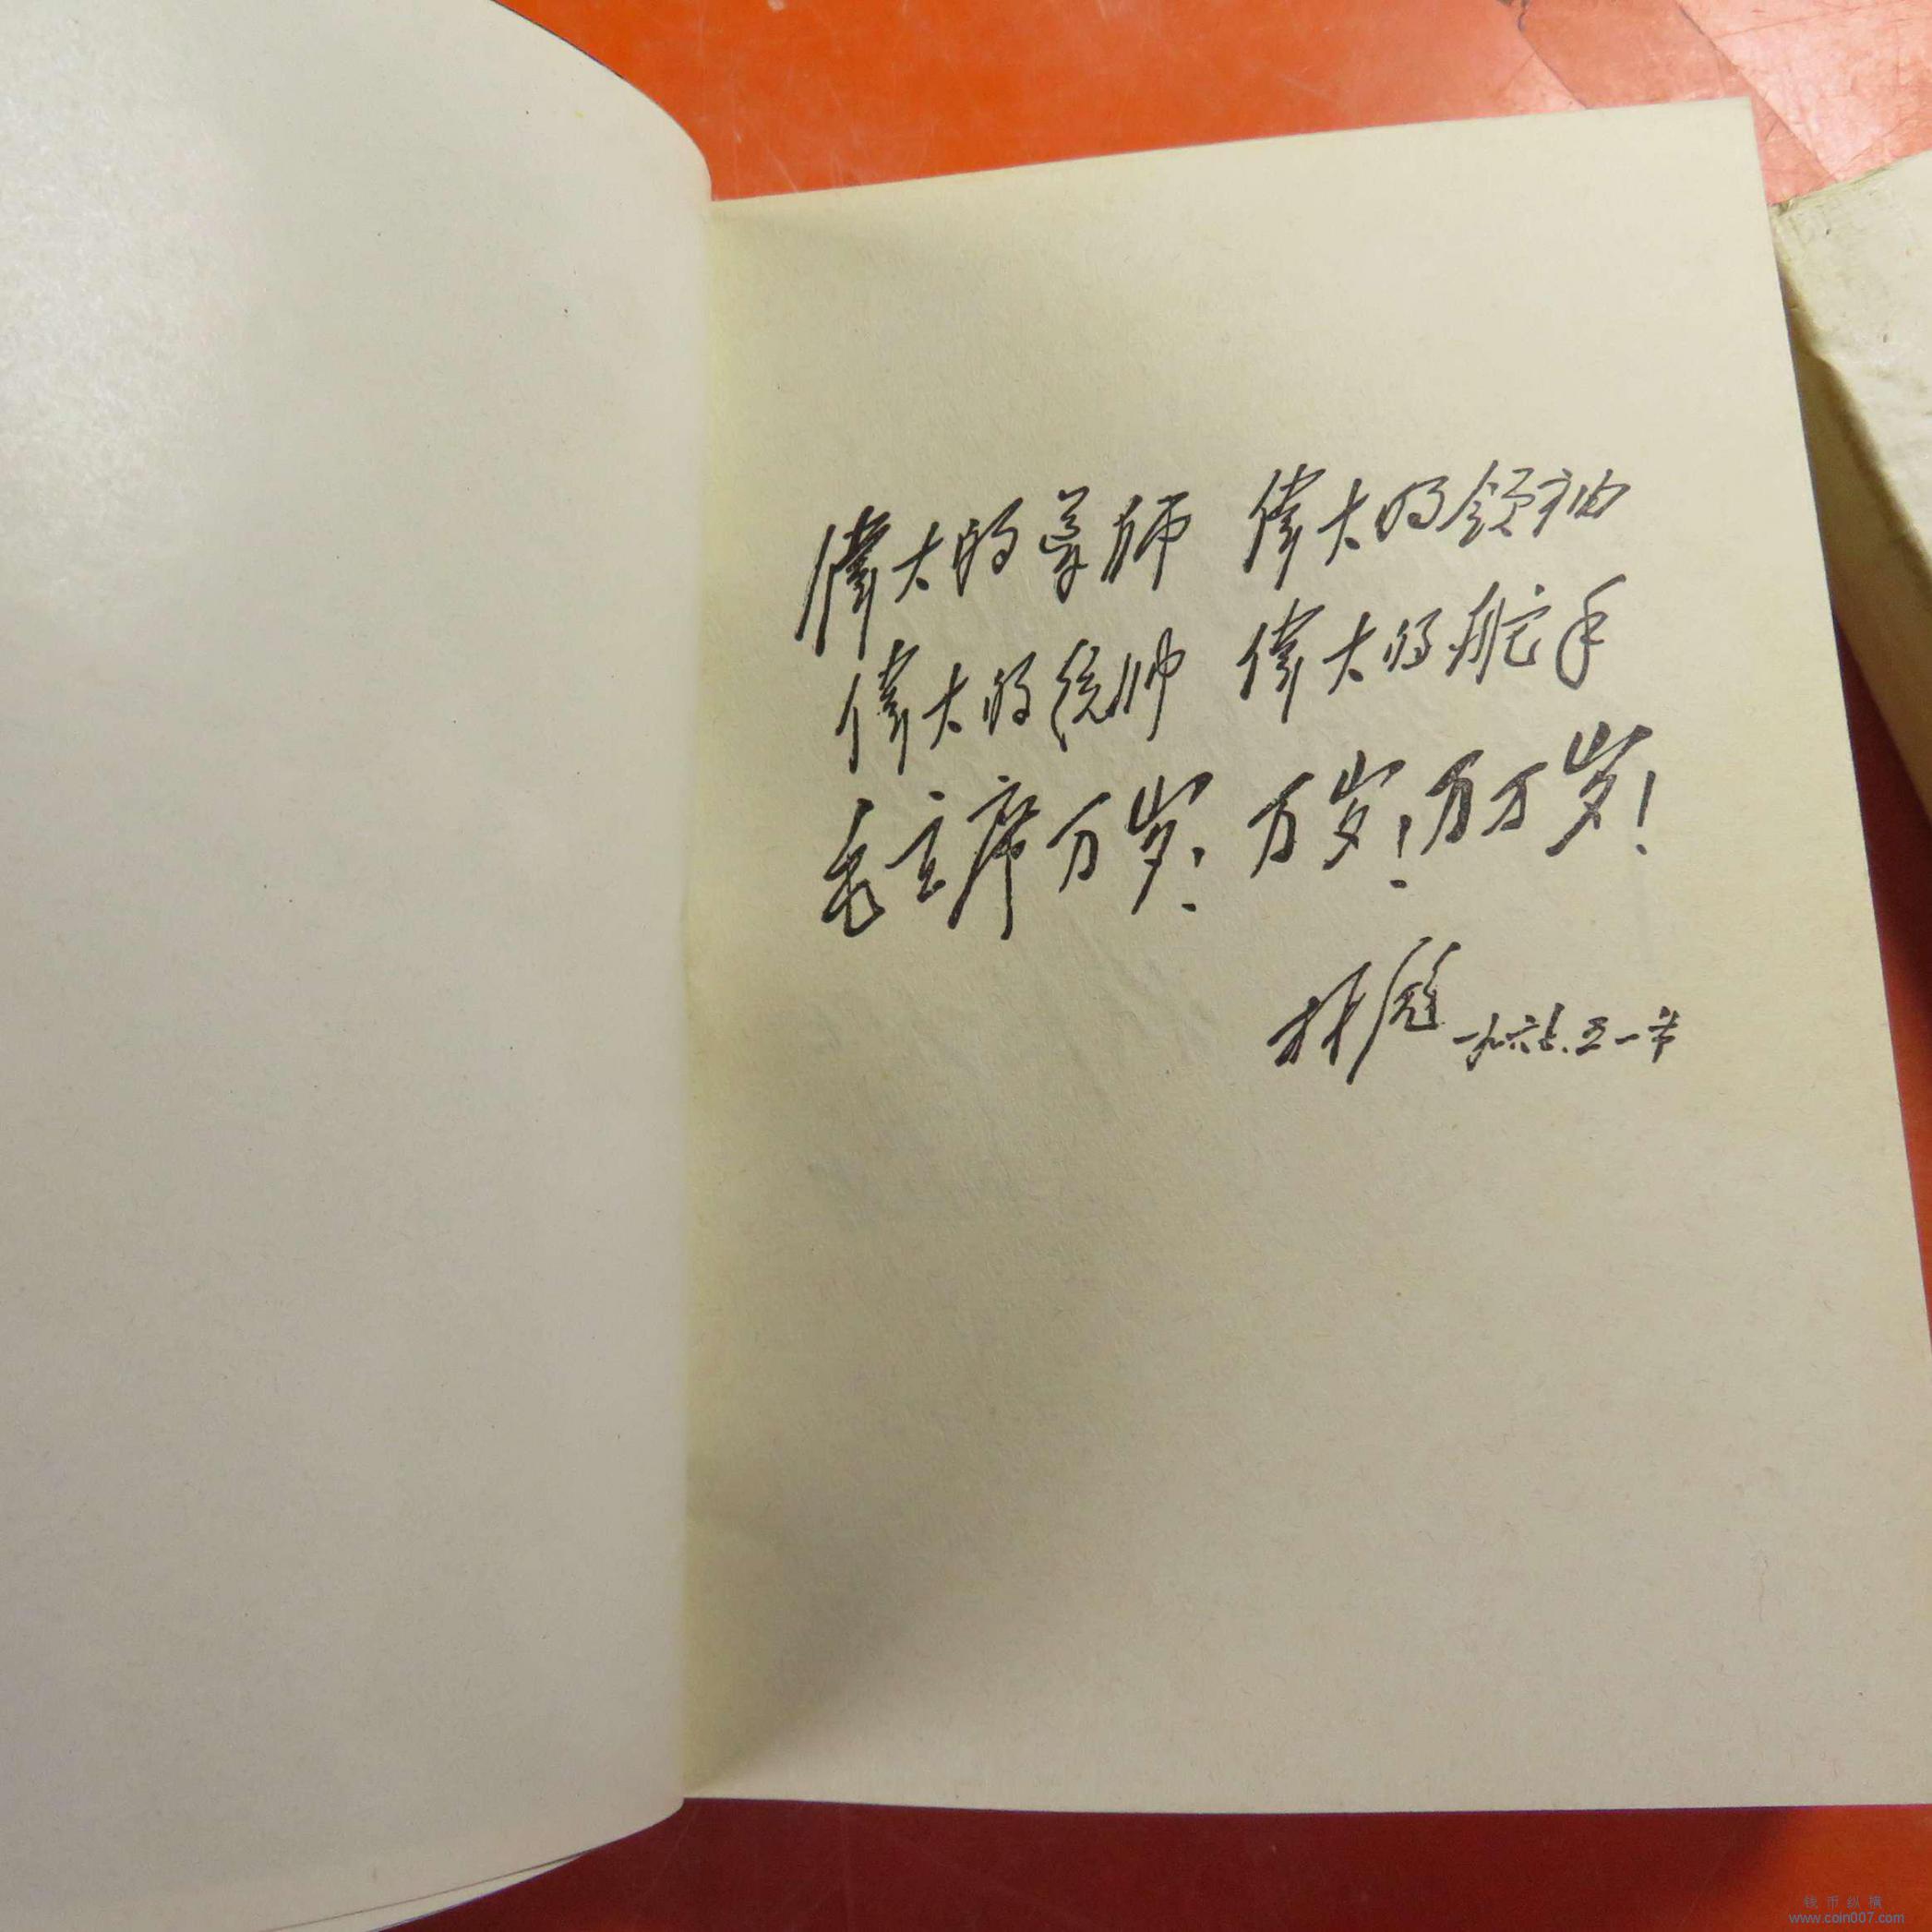 偉大的导师 偉大的领袖
偉大的统帅 偉大的舵手
毛主席万岁! 万岁!万万岁!
林彪 一九六七.五一节
钱币纵横
www.coin007.com